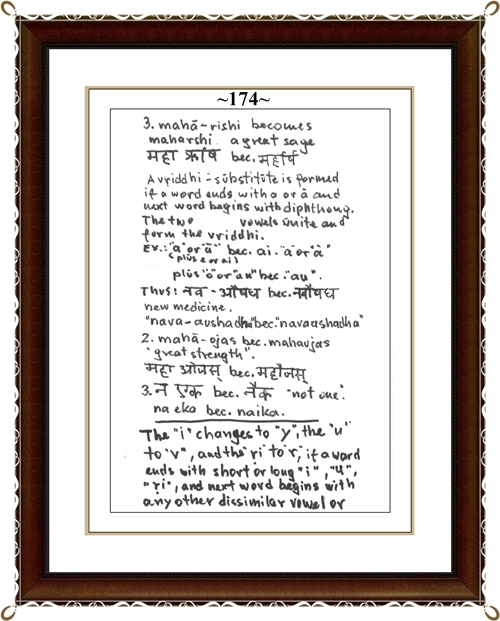 ~174~
3. mahā-rishi becomes
maharshi a great sage
महा ऋषि bec. महर्षि
A vriddhi-substitute is formed
if a word ends with a or ā and
next word begins with diphthong.
The two vowels unite and
form the vriddhi.
Ex.: "a" or "ā" bec. ai. "a" or "ā"
(plus e or ai)
plus "o" or "au" bec. "au".
Thus: नव - औषध bec. नवौषध
new medicine.
"nava-aushadha" bec. "navaushadha"
2. mahā-ojas bec. mahaujas
"great strength".
महा ओजस् bec. महौजस्
3. न एक bec. नैक "not one".
na eka bec. naika.
The "i" changes to "y", the "u"
to "v", and the ṛi to "r", if a word
ends with short or long "i", "u",
"ṛi", and next word begins with
any other dissimilar vowel or